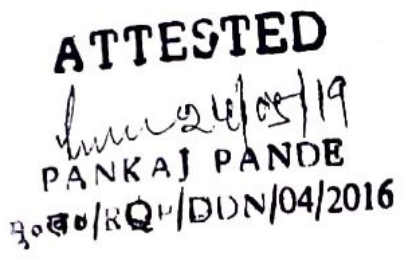 ATTESTED
24/05/19
PANKAJ PANDE
/DDN/04/2016